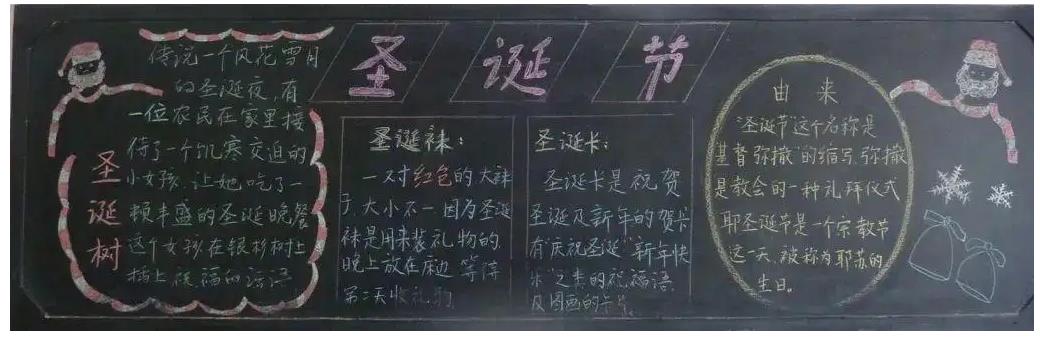 圣诞节
圣诞树
传说一个风花雪月
的圣诞夜,有
一位农民在家里接
待了一个饥寒交迫的
小女孩,让她吃了一
顿丰盛的圣诞晚餐
这个女孩在银杉树上
插上祝福的话语
圣诞袜:
一对红色的大袜
子,大小不一因为圣诞
袜是用来装礼物的,
晚上放在床边,等待
第二天收礼物
圣诞卡:
圣诞卡是祝贺
圣诞及新年的贺卡
有"庆祝圣诞""新年快
乐"之类的祝福语
及图画的卡片。
由来
"圣诞节"这个名称是
基督弥撒"的缩写,弥撒
是教会的一种礼拜仪式
耶圣诞节是一个宗教节
这一天,被称为耶苏的
生日。